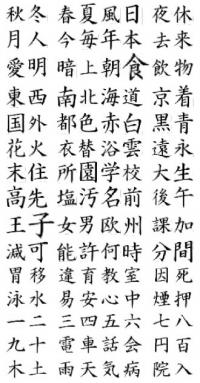 秋冬春夏風日夜休
月人今毎年本去来
愛明暗上朝食飲物
東西南北海道京着
国外都色赤白黒青
花火衣浴雲遠永
末住所園学校大生
高先塩汚名前後午
王子女男欧州課加
減可能許何時分間
胃移違育教室因死
泳水易安心中煙押
一二三四五六七八
九十電車話会円百
木土雨天気病院入